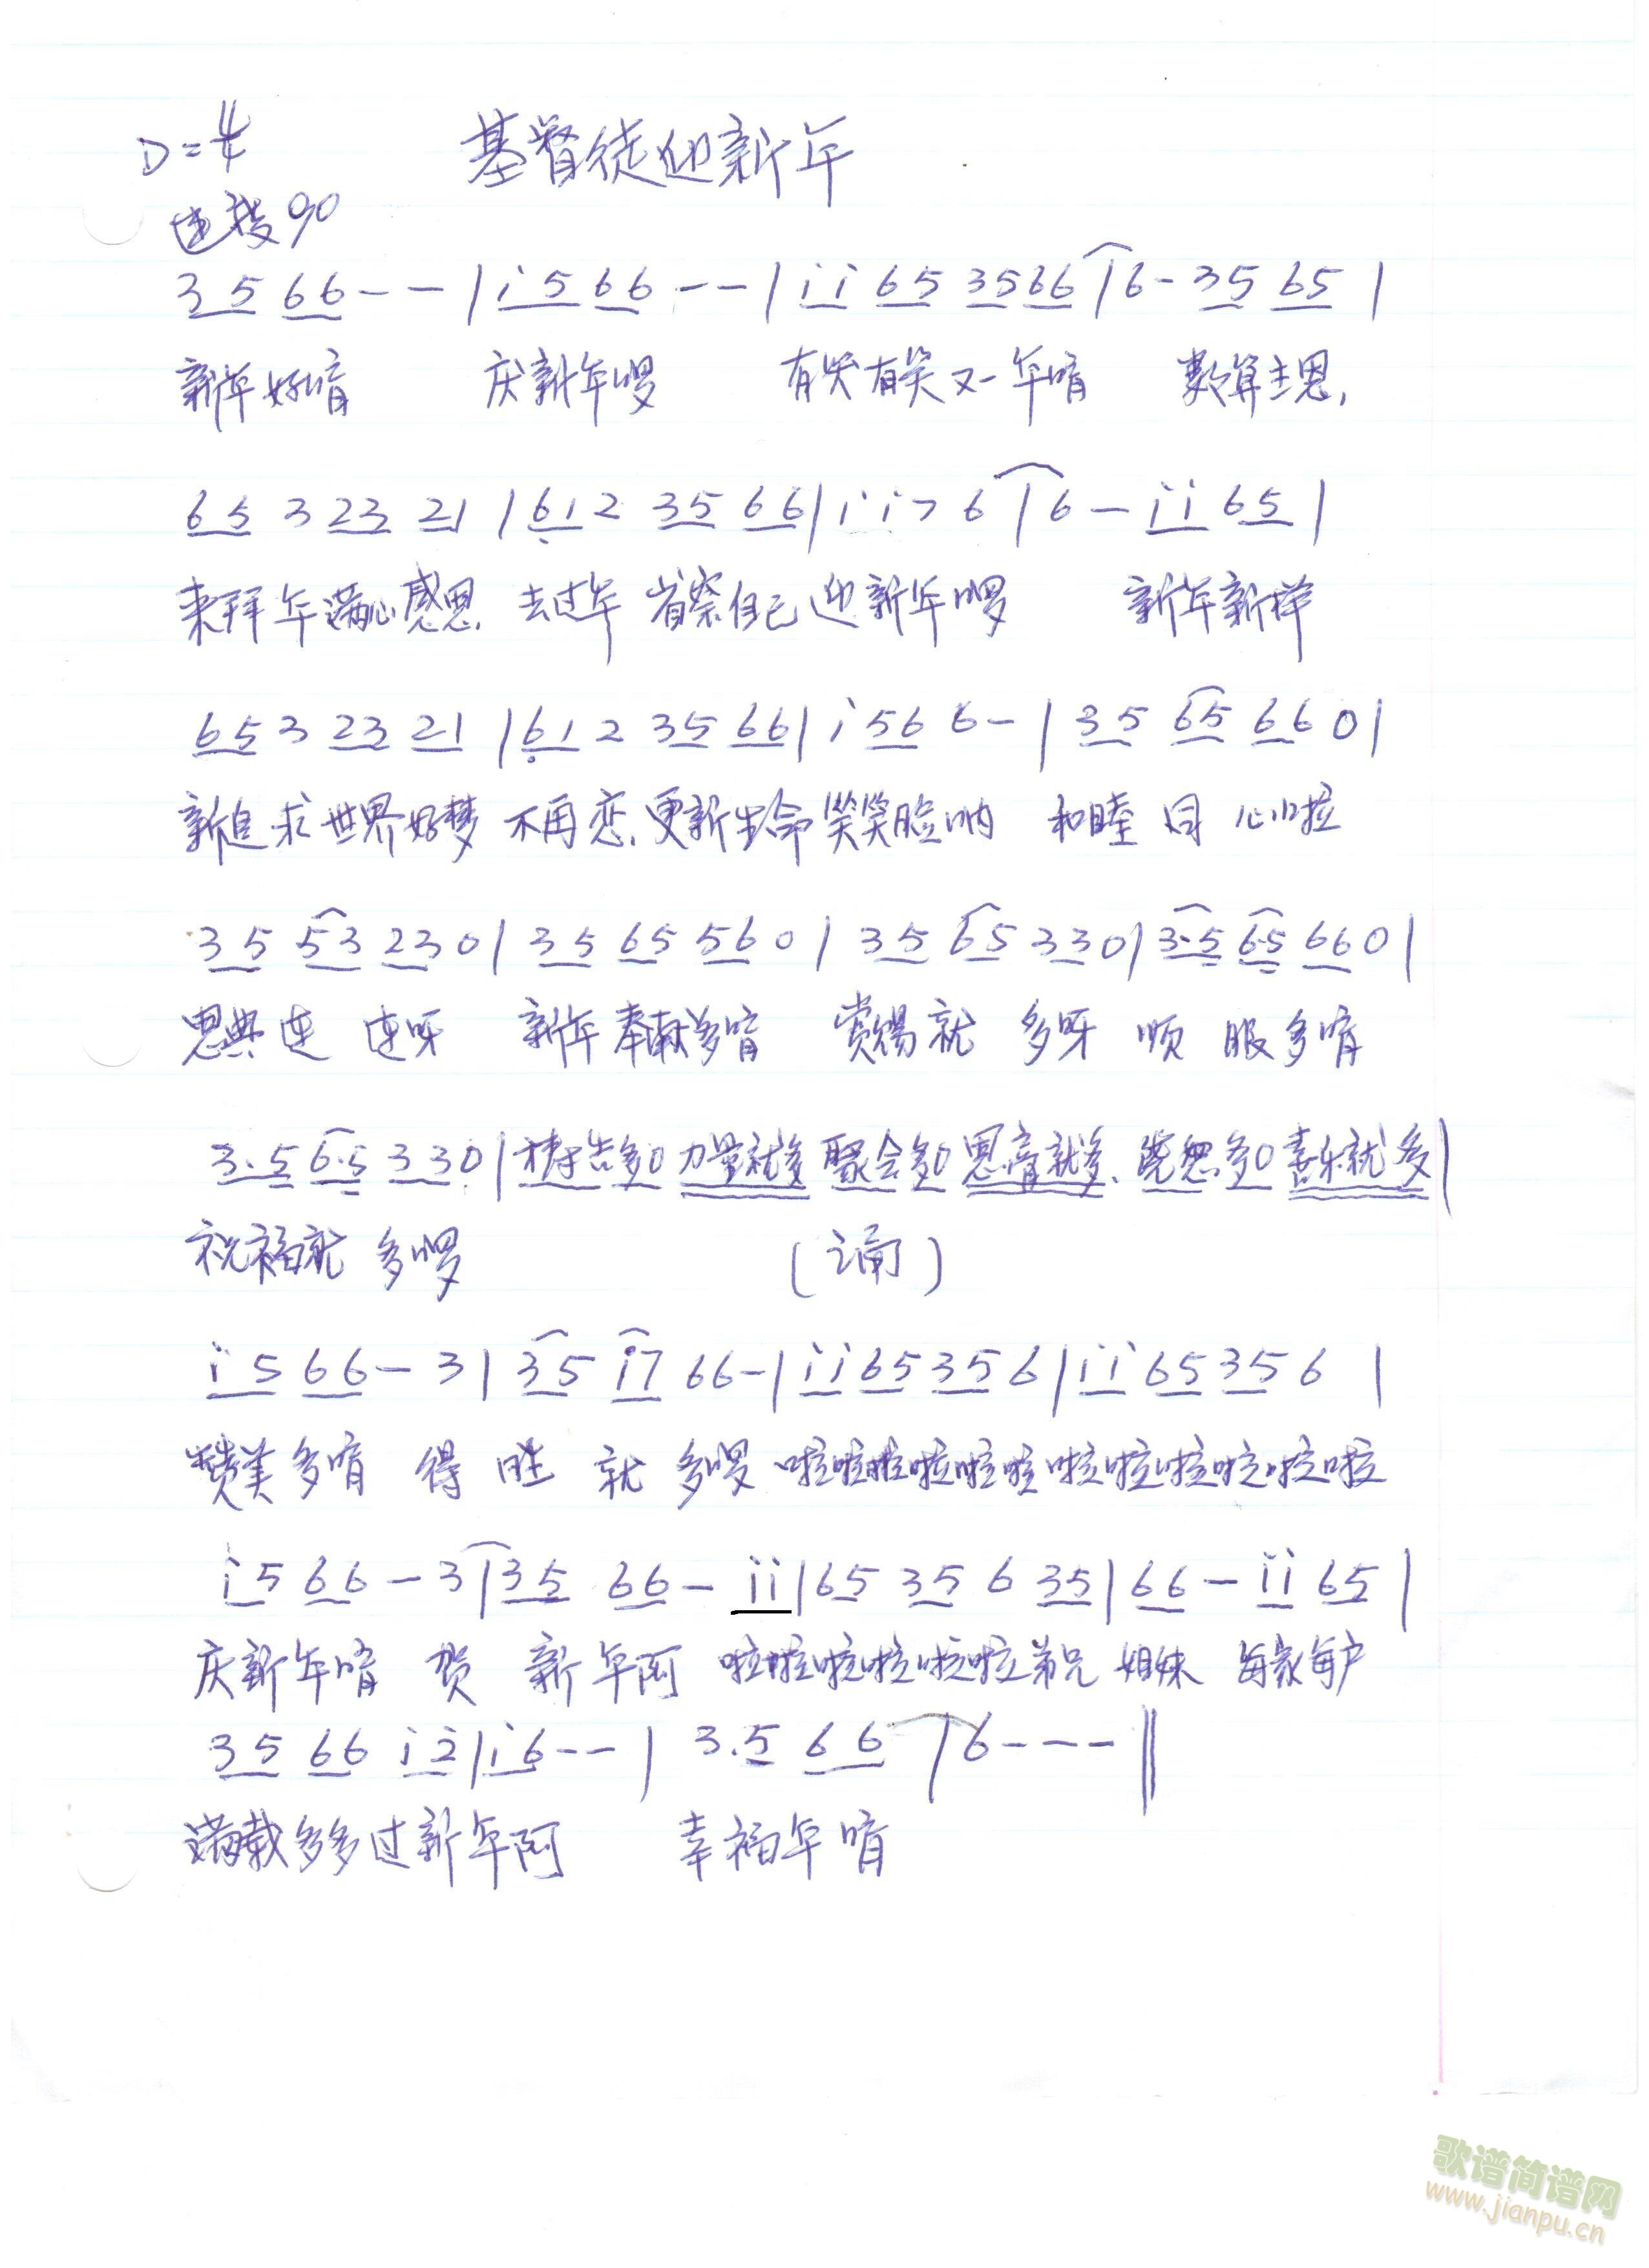 D=4/4 基督徒迎新年
速度90
3 5 6 6 - - | i 5 6 6 - - | i i 6 5 3 5 6 6 | 6 - 3 5 6 5 |
新年好唷 庆新年啰 有哭有笑又一年唷 数算主恩,
6 5 3 2 3 2 1 | 6̣ 1 2 3 5 6 6 | i i 7 6 | 6 - i i 6 5 |
来拜年满心感恩. 去过年 省察自己迎新年啰 新年新样
6 5 3 2 3 2 1 | 6̣ 1 2 3 5 6 6 | i 5 6 6 - | 3 5 6 5 6 6 0 |
新追求世界好梦 不再恋.更新生命笑笑脸呐 和睦同心啦
3 5 5 3 2 3 0 | 3 5 6 5 5 6 0 | 3 5 6 5 3 3 0 | 3·5 6·5 6 6 0 |
恩典连 连呀 新年奉献多唷 赏赐就 多呀 顺 服多唷
3·5 6·5 3 3 0 | 祷告多0 力量就多 聚会多0 恩膏就多. 饶恕多0 喜乐就多 |
祝福就 多啰 (诵)
i 5 6 6 - 3 | 3 5 i 7 6 6 - | i i 6 5 3 5 6 | i i 6 5 3 5 6 |
赞美多唷 得 胜 就 多啰 啦啦啦啦啦啦啦啦啦啦啦啦
i 5 6 6 - 3 | 3 5 6 6 - i i | 6 5 3 5 6 3 5 | 6 6 - i i 6 5 |
庆新年唷 贺 新年阿 啦啦啦啦啦啦弟兄 姐妹 每家每户
3 5 6 6 i 2̇ | i 6 - - | 3.5 6 6 | 6 - - - ‖
满载多多过新年阿 幸福年唷
歌谱简谱网
www.jianpu.cn